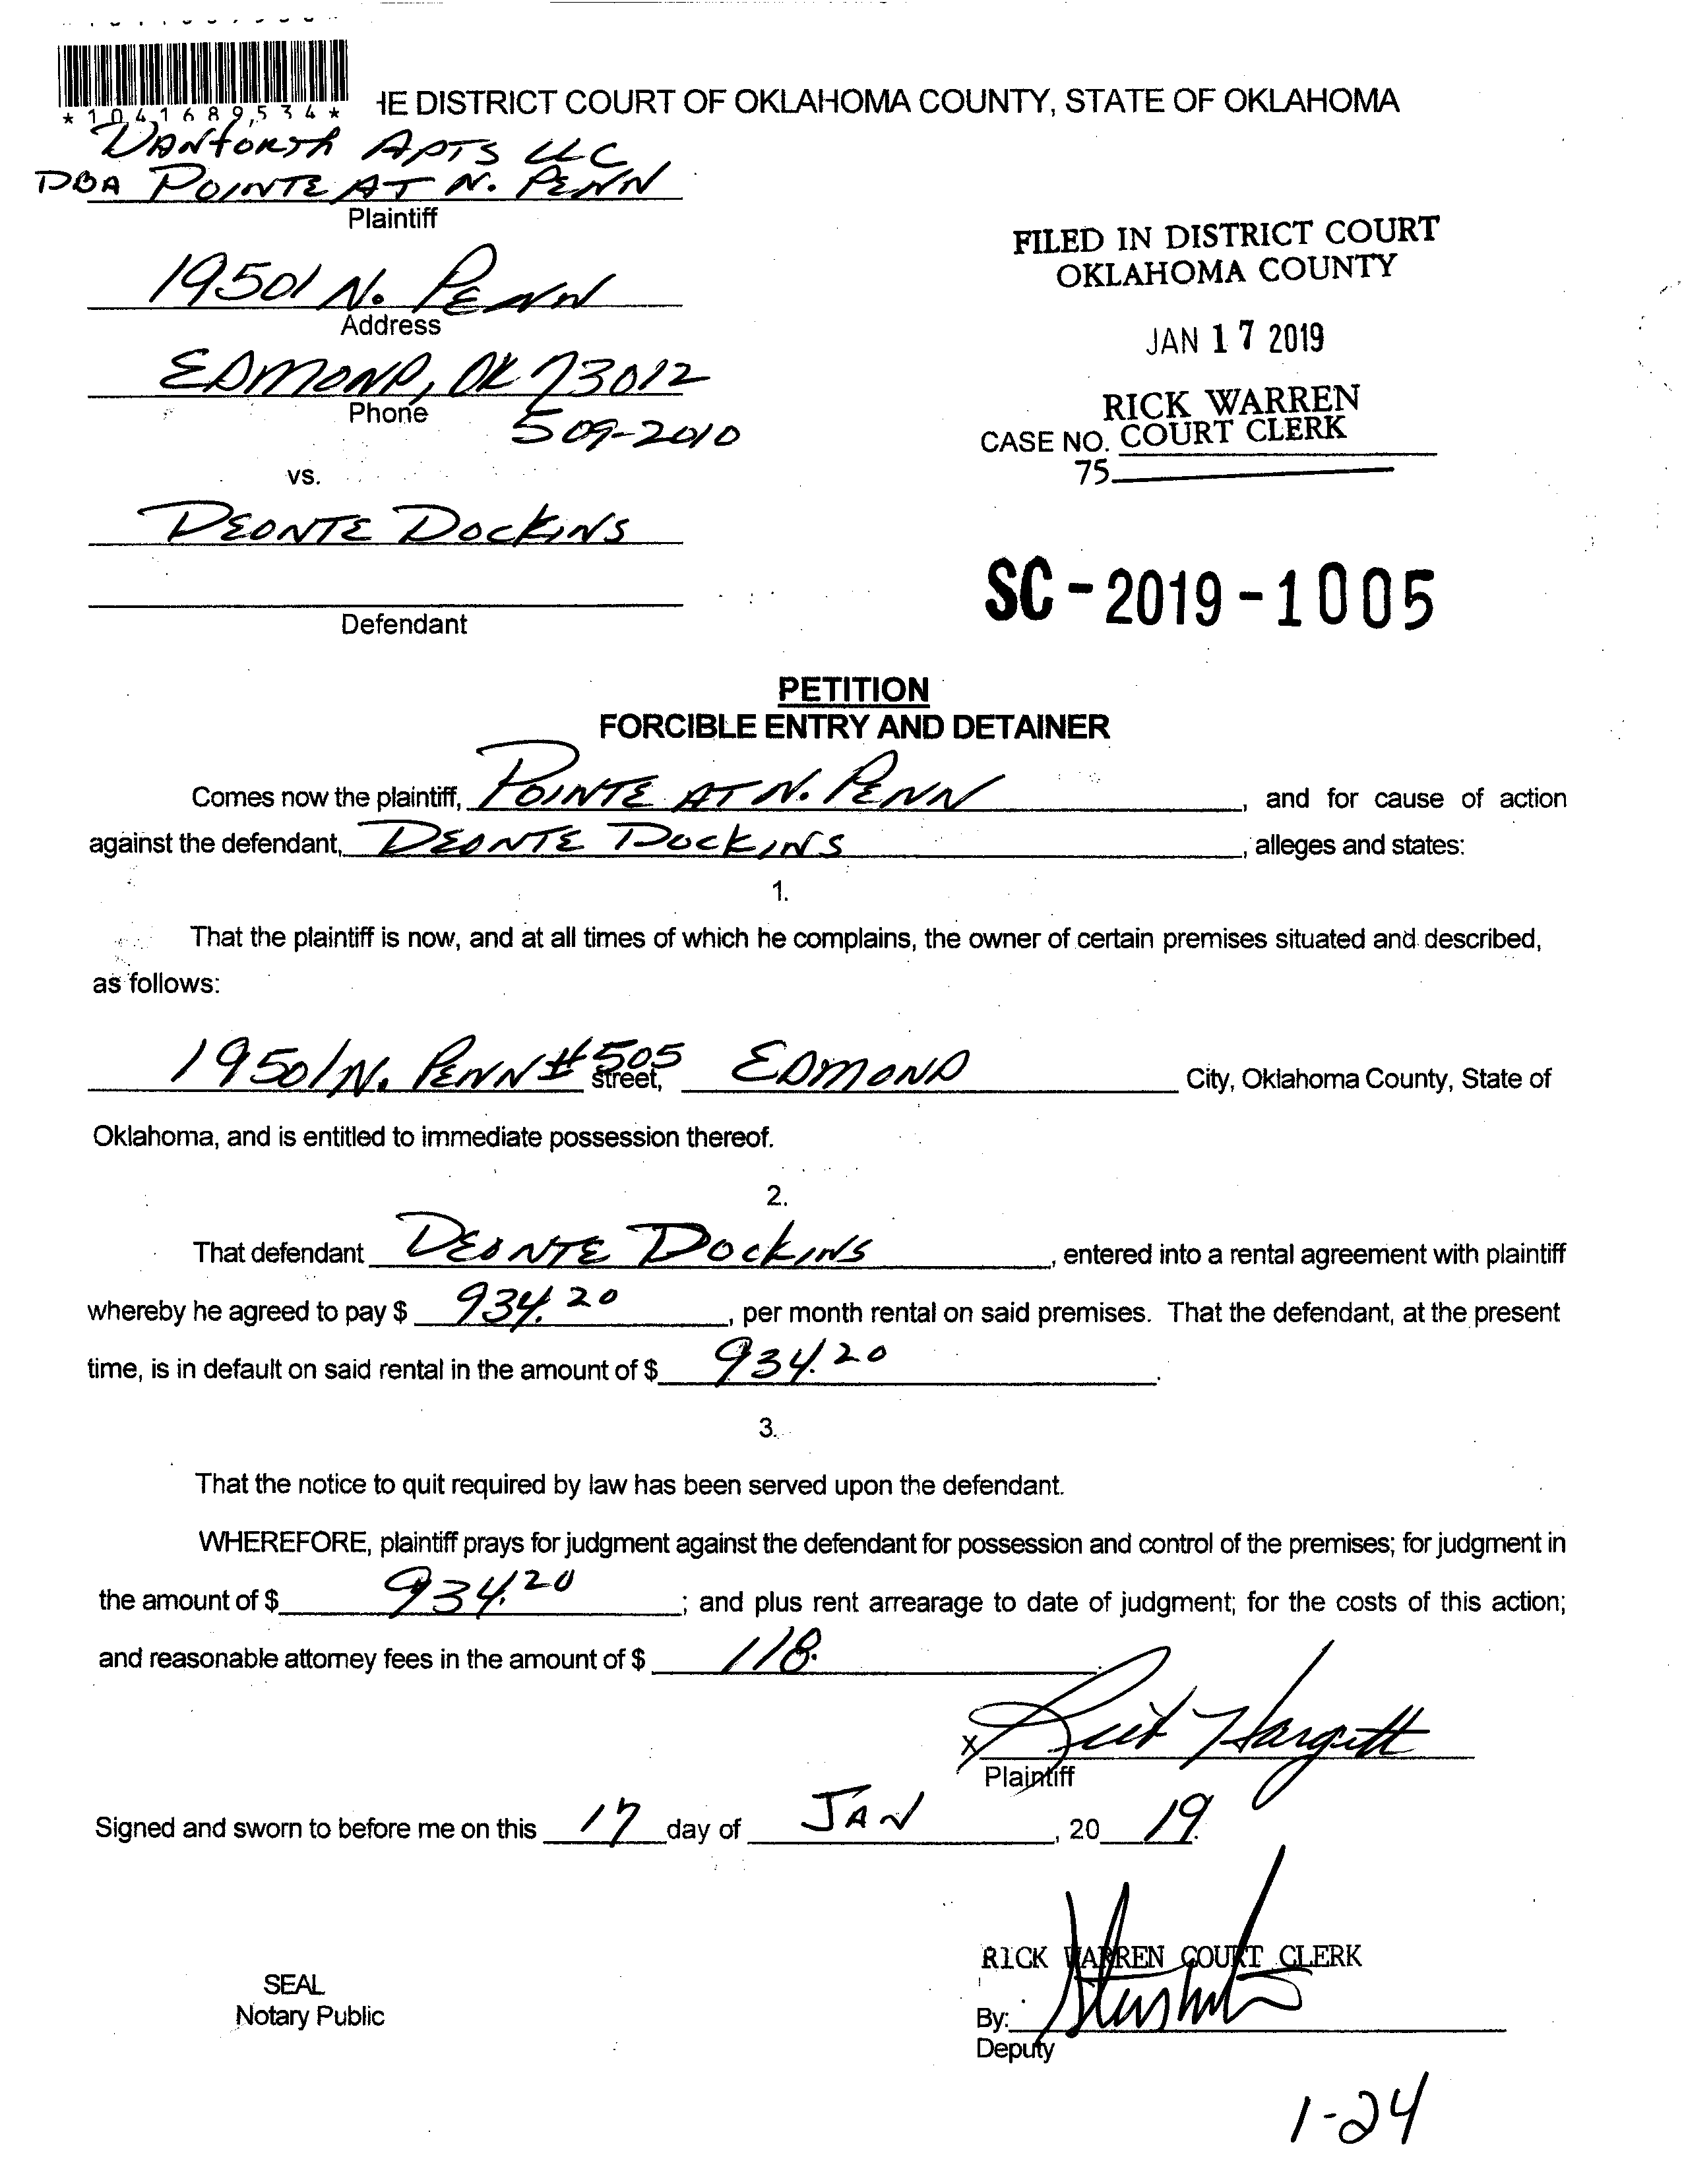 *1041689534*
HE DISTRICT COURT OF OKLAHOMA COUNTY, STATE OF OKLAHOMA
DANFORTH APTS LLC
DBA POINTE AT N. PENN
Plaintiff
19501 N. PENN
Address
EDMOND, OK 73012
Phone
509-2010
vs.
DEONTE DOCKINS
Defendant
FILED IN DISTRICT COURT
OKLAHOMA COUNTY
JAN 17 2019
RICK WARREN
CASE NO. COURT CLERK
75
SC-2019-1005
PETITION
FORCIBLE ENTRY AND DETAINER
Comes now the plaintiff, POINTE AT N. PENN, and for cause of action
against the defendant, DEONTE DOCKINS, alleges and states:
1.
That the plaintiff is now, and at all times of which he complains, the owner of certain premises situated and described,
as follows:
19501 N. PENN #505 street, EDMOND City, Oklahoma County, State of
Oklahoma, and is entitled to immediate possession thereof.
2.
That defendant DEONTE DOCKINS, entered into a rental agreement with plaintiff
whereby he agreed to pay $ 934.20, per month rental on said premises. That the defendant, at the present
time, is in default on said rental in the amount of $ 934.20.
3.
That the notice to quit required by law has been served upon the defendant.
WHEREFORE, plaintiff prays for judgment against the defendant for possession and control of the premises; for judgment in
the amount of $ 934.20; and plus rent arrearage to date of judgment; for the costs of this action;
and reasonable attorney fees in the amount of $ 118.
X Hargett
Plaintiff
Signed and sworn to before me on this 17 day of JAN, 20 19.
RICK WARREN COURT CLERK
SEAL
Notary Public
By:
Deputy
1-24